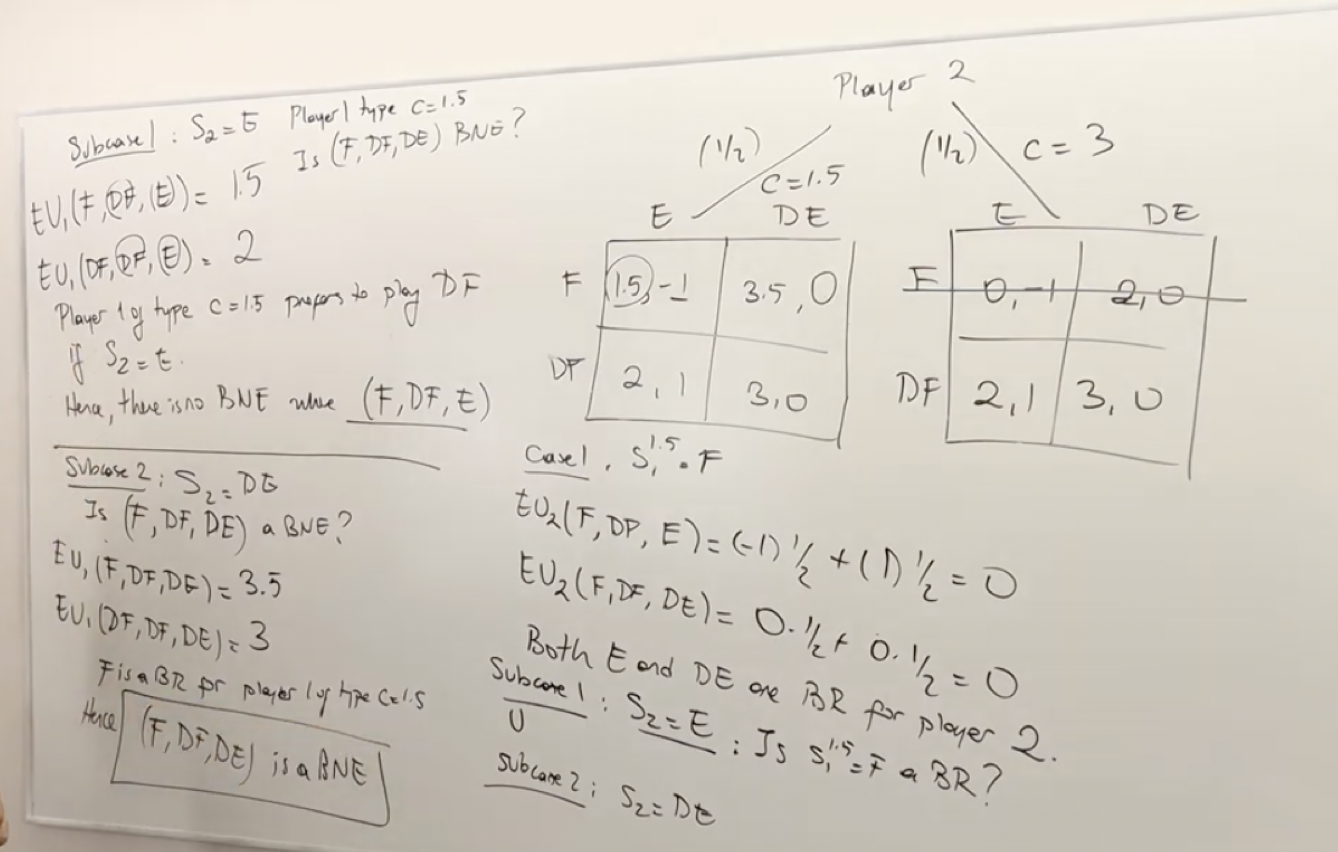 Subcase 1 : S₂ = E Player 1 type C=1.5
Is (F, DF, DE) BNE?
EU₁(F, DF, (E)) = 1.5
EU₁(DF, DF, E) = 2
Player 1 of type C=1.5 prefers to play DF
if S₂ = E.
Hence, there is no BNE where (F, DF, E)
Subcase 2 : S₂ = DE
Is (F, DF, DE) a BNE?
EU₁(F, DF, DE) = 3.5
EU₁(DF, DF, DE) = 3
F is a BR for player 1 of type C=1.5
Hence (F, DF, DE) is a BNE
Player 2
(1/2) C=1.5
E DE
F 1.5, -1 3.5, 0
DF 2, 1 3, 0
(1/2) C = 3
E DE
F 0, -1 2, 0
DF 2, 1 3, 0
Case 1. S₁^1.5 = F
EU₂(F, DF, E) = (-1) 1/2 + (1) 1/2 = 0
EU₂(F, DF, DE) = 0·1/2 + 0·1/2 = 0
Both E and DE are BR for player 2.
Subcase 1 : S₂ = E : Is S₁^1.5 = F a BR?
Subcase 2 : S₂ = DE